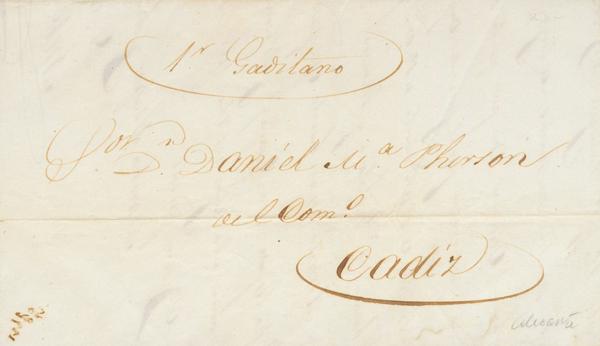 1r Gaditano
Sor Dn Daniel Ma Pherson
del Como
Cadiz
Alicante